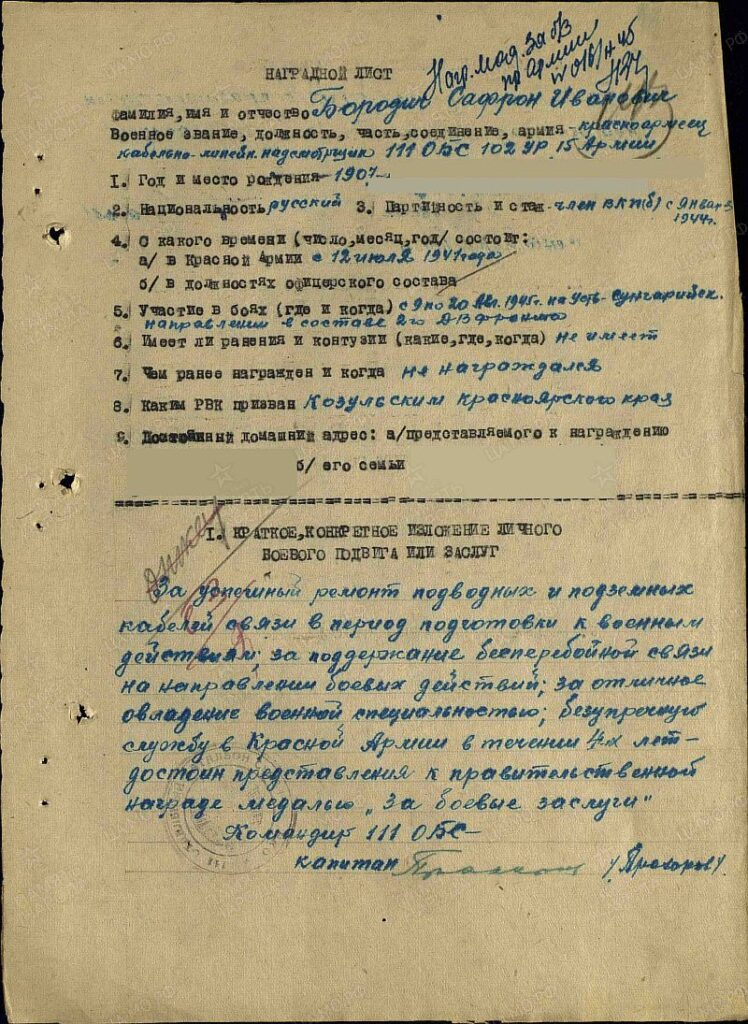 Нагр. мед. За б/з
пр Армии
N 016/н 45
НАГРАДНОЙ ЛИСТ
Фамилия,имя и отчество Бородин Сафрон Иванович
Военное звание, должность, часть,соединение, армия красноармеец
кабельно-линейн. надсмотрщик 111 ОБС 102 УР 15 Армии
I. Год и место рождения 1907
2. Национальность русский 3. Партийность и стаж член ВКП(б) с января
1944г.
4. С какого времени (число,месяц,год/ состоит:
а/ в Красной Армии с 12 июля 1941 года
б/ в должностях офицерского состава
5. Участие в боях (где и когда) с 9 по 20 Авг. 1945г. на Усть-Сунгарийск.
направлении в составе 2го ДВ фронта
6. Имеет ли ранения и контузии (какие,где,когда) не имеет
7. Чем ранее награжден и когда не награждался
8. Каким РВК призван Козульским Красноярского края
9. Постоянный домашний адрес: а/представляемого к награждению
б/ его семьи
I. КРАТКОЕ,КОНКРЕТНОЕ ИЗЛОЖЕНИЕ ЛИЧНОГО
БОЕВОГО ПОДВИГА ИЛИ ЗАСЛУГ
За успешный ремонт подводных и подземных
кабелей связи в период подготовки к военным
действиям; за поддержание бесперебойной связи
на направлении боевых действий; за отличное
овладение военной специальностью; безупречную
службу в Красной Армии в течении 4х лет-
достоин представления к правительственной
награде медалью „За боевые заслуги"
Командир 111 ОБС-
капитан /Прохоров/